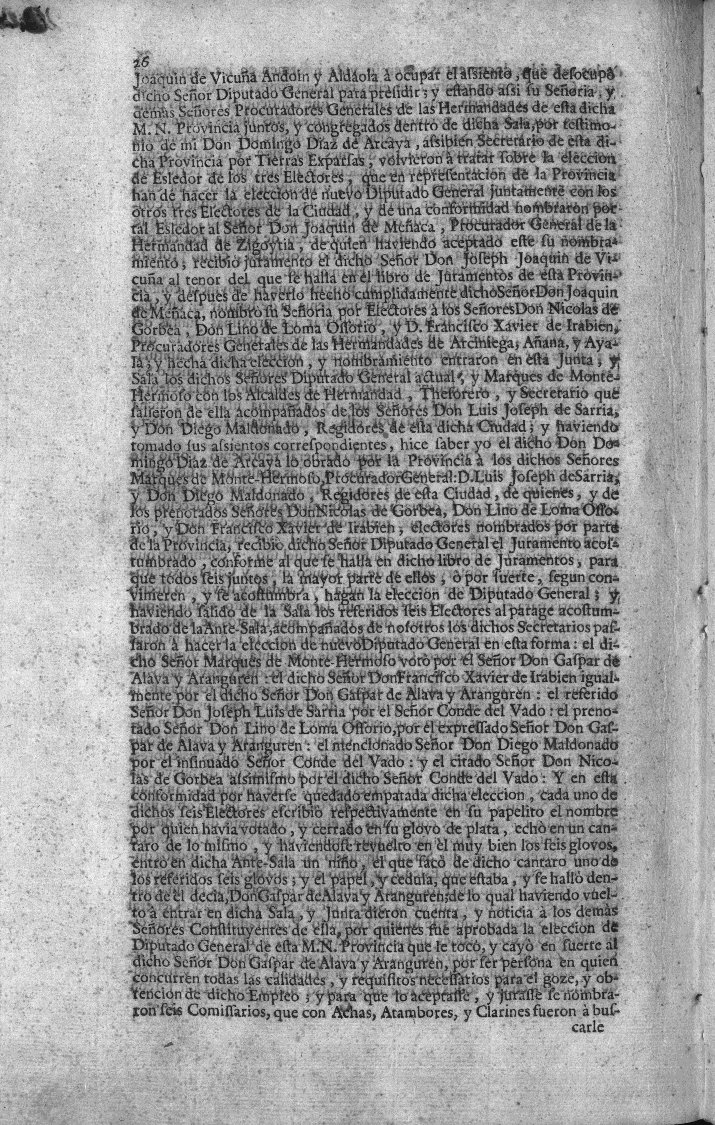 26
Joaquin de Vicuña Andoin y Aldaola à ocupar el assiento, que desocupò
dicho Señor Diputado General para presidir; y estando assi su Señoria, y
demàs Señores Procuradores Generales de las Hermandades de esta dicha
M. N. Provincia juntos, y congregados dentro de dicha Sala, por testimo-
nio de mi Don Domingo Diaz de Arcaya, assibien Secretario de esta di-
cha Provincia por Tierras Esparsas, volvieron à tratar sobre la eleccion
de Esledor de los tres Electores, que en representacion de la Provincia
han de hacer la eleccion de nuevo Diputado General juntamente con los
otros tres Electores de la Ciudad, y de una conformidad nombraron por
tal Esledor al Señor Don Joaquin de Meñaca, Procurador General de la
Hermandad de Zigoytia, de quien haviendo aceptado este su nombra-
miento; recibiò juramento el dicho Señor Don Joseph Joaquin de Vi-
cuña al tenor del que se halla en el libro de Juramentos de esta Provin-
cia, y despues de haverlo hecho cumplidamente dicho Señor Don Joaquin
de Meñaca, nombrò su Señoria por Electores à los Señores Don Nicolas de
Gorbea, Don Lino de Loma Ossorio, y D. Francisco Xavier de Irabien,
Procuradores Generales de las Hermandades de Arciniega, Añana, y Aya-
la; y hecha dicha eleccion, y nombramiento entraron en esta Junta, y
Sala los dichos Señores Diputado General actual, y Marques de Monte-
Hermoso con los Alcaldes de Hermandad, Thesorero, y Secretario que
salieron de ella acompañados de los Señores Don Luis Joseph de Sarria,
y Don Diego Maldonado, Regidores de esta dicha Ciudad; y haviendo
tomado sus assientos correspondientes, hice saber yo el dicho Don Do-
mingo Diaz de Arcaya lo obrado por la Provincia à los dichos Señores
Marques de Monte-Hermoso, Procurador General: D. Luis Joseph de Sarria,
y Don Diego Maldonado, Regidores de esta Ciudad, de quienes, y de
los prenotados Señores Don Nicolas de Gorbea, Don Lino de Loma Osso-
rio, y Don Francisco Xavier de Irabien, electores nombrados por parte
de la Provincia, recibiò dicho Señor Diputado General el Juramento acos-
tumbrado, conforme al que se halla en dicho libro de Juramentos, para
que todos seis juntos, la mayor parte de ellos, ò por suerte, segun con-
vinieren, y se acostumbra, hagan la eleccion de Diputado General; y
haviendo salido de la Sala los referidos seis Electores al parage acostum-
brado de la Ante-Sala, acompañados de nosotros los dichos Secretarios pas-
saron à hacer la eleccion de nuevo Diputado General en esta forma: el di-
cho Señor Marques de Monte-Hermoso votò por el Señor Don Gaspar de
Alava y Aranguren: el dicho Señor Don Francisco Xavier de Irabien igual-
mente por el dicho Señor Don Gaspar de Alava y Aranguren: el referido
Señor Don Joseph Luis de Sarria por el Señor Conde del Vado: el preno-
tado Señor Don Lino de Loma Ossorio, por el expressado Señor Don Gas-
par de Alava y Aranguren: el mencionado Señor Don Diego Maldonado
por el insinuado Señor Conde del Vado: y el citado Señor Don Nico-
las de Gorbea assimismo por el dicho Señor Conde del Vado: Y en esta
conformidad por haverse quedado empatada dicha eleccion, cada uno de
dichos seis Electores escribiò respectivamente en su papelito el nombre
por quien havia votado, y cerrado en su glovo de plata, echò en un can-
taro de lo mismo, y haviendose revuelto en èl muy bien los seis glovos,
entrò en dicha Ante-Sala un niño, el que sacò de dicho cantaro uno de
los referidos seis glovos; y el papel, y cedula, que estaba, y se hallò den-
tro de èl decìa, Don Gaspar de Alava y Aranguren; de lo qual haviendo vuel-
to à entrar en dicha Sala, y Junta dieron cuenta, y noticia à los demàs
Señores Constituyentes de ella, por quienes fue aprobada la eleccion de
Diputado General de esta M. N. Provincia que le tocò, y cayò en suerte al
dicho Señor Don Gaspar de Alava y Aranguren, por ser persona en quien
concurren todas las calidades, y requisitos necessarios para el goze, y ob-
tencion de dicho Empleo; y para que lo aceptasse, y jurasse se nombra-
ron seis Comissarios, que con Achas, Atambores, y Clarines fueron à bus-
carle